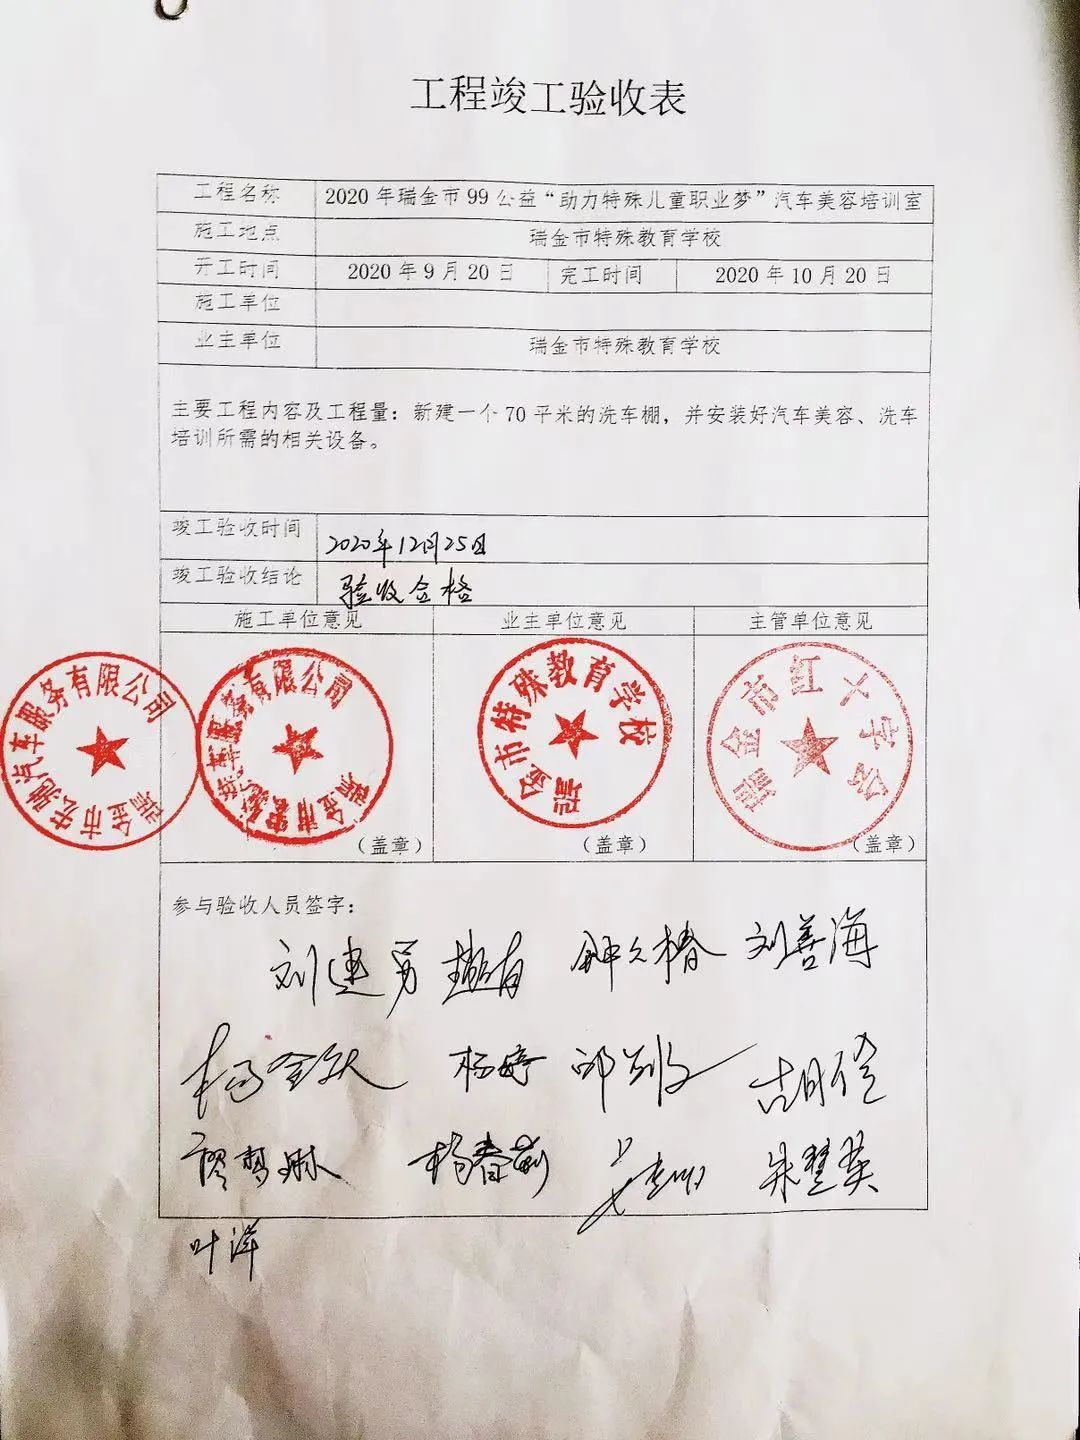 工程竣工验收表
工程名称 2020年瑞金市99公益“助力特殊儿童职业梦”汽车美容培训室
施工地点 瑞金市特殊教育学校
开工时间 2020年9月20日 完工时间 2020年10月20日
施工单位
业主单位 瑞金市特殊教育学校
主要工程内容及工程量：新建一个70平米的洗车棚，并安装好汽车美容、洗车
培训所需的相关设备。
竣工验收时间 2020年12月25日
竣工验收结论 验收合格
施工单位意见 业主单位意见 主管单位意见
瑞金市宏驰汽车服务有限公司
瑞金市宏驰汽车服务有限公司
瑞金市特殊教育学校
瑞金市红十字会
（盖章） （盖章） （盖章）
参与验收人员签字：
刘建勇 钟久椿 刘善海
杨金跃 杨婷 胡佳
廖梦琳 杨春莉 朱慧英
叶洋